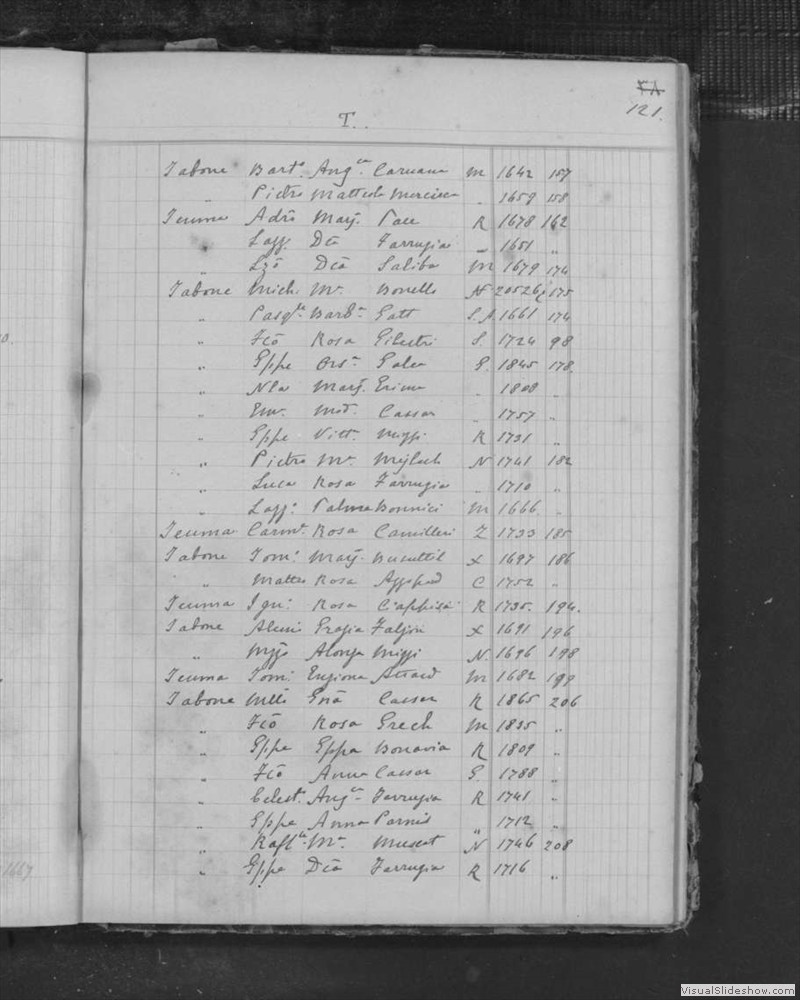 121.
T.
Tabone Bart.o Ang.ca Caruana M 1642 157
" Pietro Mattea " 1659 158
Teuma Adrõ Marg. Pace R 1678 162
" Lazz. Dcã Farrugia " 1651 "
" Lzõ Dcã Saliba M 1679 174
Tabone Mich. M.a Bonello N 175
" Pasq.le Barb.a Gatt 1661 174
" Fcõ Rosa S. 1724 98
" Gppe Ors.a Galea G. 1845 178.
" Nla Marg. " 1808 "
" Em. Mod. Cassar " 1757 "
" Gppe Vitt. Mizzi R 1731 "
" Pietro M.a N 1741 182
" Luca Rosa Farrugia " 1710 "
" Lazz.o Palma Bonnici M 1666 "
Teuma Carm.o Rosa Camilleri Z 1733 185
Tabone Tom.o Marg. Busuttil X 1697 186
" Matteo Rosa Azzopard C 1752 "
Teuma Ign.o Rosa R 1735. 194.
Tabone Grazia X 1691 196
" Alonza Mizzi N. 1696 198
Teuma Tom.o Eugiona Attard M 1682 199
Tabone Mttõ Gnã Cassar R 1865 206
" Fcõ Rosa Grech M 1835 "
" Gppe Gppa Bonavia R 1809 "
" Fcõ Anna Cassar G. 1788 "
" Celest.o Ang.ca Farrugia R 1741 "
" Gppe Anna Parnis " 1712 "
" Rafl.le M.a Muscat N 1746 208
" Gppe Dcã Farrugia R 1716 "
1667
VisualSlideshow.com